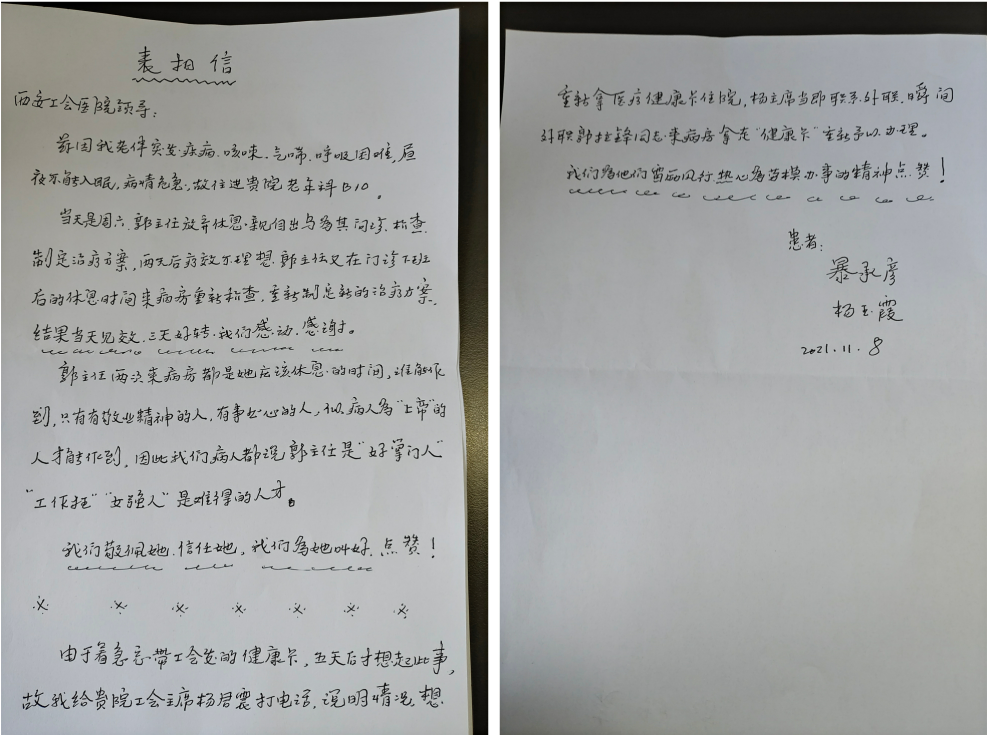 表扬信
西安工会医院领导：
兹因我老伴突发疾病.咳嗽.气喘.呼吸困难,昼
夜不能入眠,病情危急.故住进贵院老年科B10。
当天是周六.郭主任放弃休息.亲自出马为其问诊.检查.
制定治疗方案,两天后疗效不理想.郭主任又在门诊下班
后的休息时间来病房重新检查,重新制定新的治疗方案.
结果当天见效.三天好转.我们感动.感谢。
郭主任两次来病房都是她应该休息的时间,谁能作
到,只有有敬业精神的人,有事业心的人,似病人为"上帝"的
人才能作到,因此我们病人都说郭主任是"好掌门人"
"工作狂""女强人"是难得的人才。
我们敬佩她.信任她,我们为她叫好.点赞!
由于着急忘带工会发的健康卡,五天后才想起此事,
故我给贵院工会主席杨君震打电话,说明情况.想
重新拿医疗健康卡住院,杨主席当即联系外联.瞬间
外联郭 锋同志来病房拿走"健康卡"重新予以办理。
我们为他们雷厉风行热心为劳模办事的精神点赞!
患者:
暴承彦
杨玉霞
2021.11.8